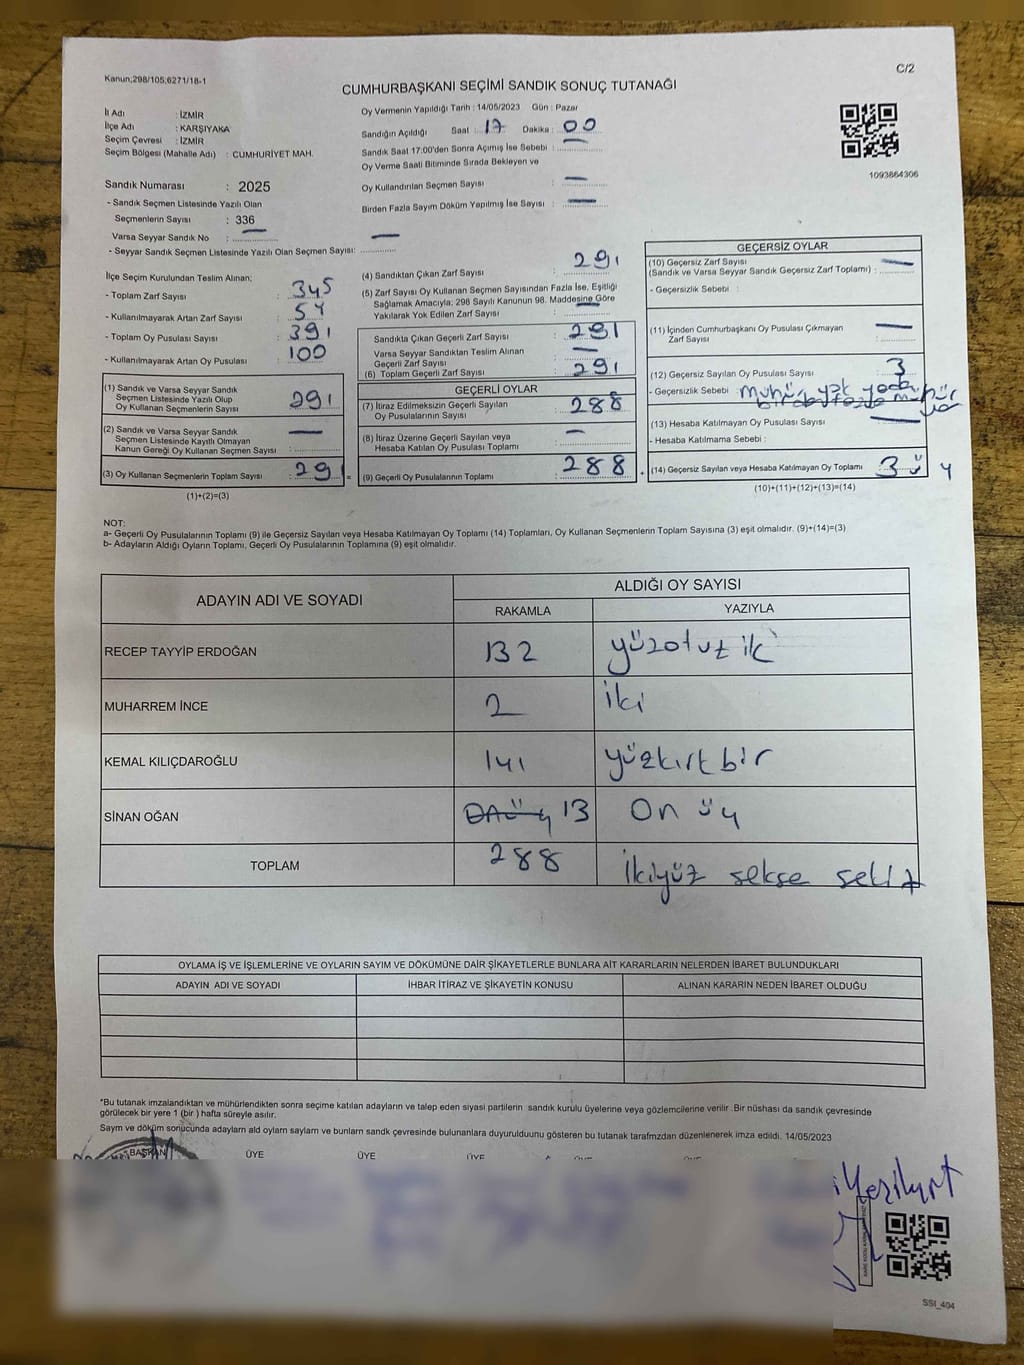 Kanun;298/105;6271/18-1
C/2
CUMHURBAŞKANI SEÇİMİ SANDIK SONUÇ TUTANAĞI
İl Adı : İZMİR
İlçe Adı : KARŞIYAKA
Seçim Çevresi : İZMİR
Seçim Bölgesi (Mahalle Adı) : CUMHURİYET MAH.
Sandık Numarası : 2025
- Sandık Seçmen Listesinde Yazılı Olan
Seçmenlerin Sayısı : 336
Varsa Seyyar Sandık No : —
- Seyyar Sandık Seçmen Listesinde Yazılı Olan Seçmen Sayısı: —
Oy Vermenin Yapıldığı Tarih : 14/05/2023 Gün : Pazar
Sandığın Açıldığı Saat : 17 Dakika : 00
Sandık Saat 17:00'den Sonra Açımış İse Sebebi : —
Oy Verme Saati Bitiminde Sırada Bekleyen ve
Oy Kullandırılan Seçmen Sayısı : —
Birden Fazla Sayım Döküm Yapılmış İse Sayısı : —
1093864306
İlçe Seçim Kurulundan Teslim Alınan:
- Toplam Zarf Sayısı : 345
- Kullanılmayarak Artan Zarf Sayısı : 54
- Toplam Oy Pusulası Sayısı : 391
- Kullanılmayarak Artan Oy Pusulası : 100
(1) Sandık ve Varsa Seyyar Sandık
Seçmen Listesinde Yazılı Olup
Oy Kullanan Seçmenlerin Sayısı : 291
(2) Sandık ve Varsa Seyyar Sandık
Seçmen Listesinde Kayıtlı Olmayan
Kanun Gereği Oy Kullanan Seçmen Sayısı : —
(3) Oy Kullanan Seçmenlerin Toplam Sayısı : 291
(1)+(2)=(3)
(4) Sandıktan Çıkan Zarf Sayısı : 291
(5) Zarf Sayısı Oy Kullanan Seçmen Sayısından Fazla İse, Eşitliği
Sağlamak Amacıyla; 298 Sayılı Kanunun 98. Maddesine Göre
Yakılarak Yok Edilen Zarf Sayısı : —
Sandıkta Çıkan Geçerli Zarf Sayısı : 291
Varsa Seyyar Sandıktan Teslim Alınan
Geçerli Zarf Sayısı : —
(6) Toplam Geçerli Zarf Sayısı : 291
GEÇERLİ OYLAR
(7) İtiraz Edilmeksizin Geçerli Sayılan
Oy Pusulalarının Sayısı : 288
(8) İtiraz Üzerine Geçerli Sayılan veya
Hesaba Katılan Oy Pusulası Toplamı : —
(9) Geçerli Oy Pusulalarının Toplamı : 288
GEÇERSİZ OYLAR
(10) Geçersiz Zarf Sayısı
(Sandık ve Varsa Seyyar Sandık Geçersiz Zarf Toplamı) : —
- Geçersizlik Sebebi :
(11) İçinden Cumhurbaşkanı Oy Pusulası Çıkmayan
Zarf Sayısı : —
(12) Geçersiz Sayılan Oy Pusulası Sayısı : 3
- Geçersizlik Sebebi : mühür yok yada
birden fazla mühür
(13) Hesaba Katılmayan Oy Pusulası Sayısı : —
- Hesaba Katılmama Sebebi :
(14) Geçersiz Sayılan veya Hesaba Katılmayan Oy Toplamı : 3 üç
(10)+(11)+(12)+(13)=(14)
NOT:
a- Geçerli Oy Pusulalarının Toplamı (9) ile Geçersiz Sayılan veya Hesaba Katılmayan Oy Toplamı (14) Toplamları, Oy Kullanan Seçmenlerin Toplam Sayısına (3) eşit olmalıdır. (9)+(14)=(3)
b- Adayların Aldığı Oyların Toplamı, Geçerli Oy Pusulalarının Toplamına (9) eşit olmalıdır.
ADAYIN ADI VE SOYADI
ALDIĞI OY SAYISI
RAKAMLA YAZIYLA
RECEP TAYYİP ERDOĞAN 132 yüzotuz iki
MUHARREM İNCE 2 iki
KEMAL KILIÇDAROĞLU 141 yüzkırk bir
SİNAN OĞAN Onüç 13 On üç
TOPLAM 288 İkiyüz sekse sekiz
OYLAMA İŞ VE İŞLEMLERİNE VE OYLARIN SAYIM VE DÖKÜMÜNE DAİR ŞİKAYETLERLE BUNLARA AİT KARARLARIN NELERDEN İBARET BULUNDUKLARI
ADAYIN ADI VE SOYADI İHBAR İTİRAZ VE ŞİKAYETİN KONUSU ALINAN KARARIN NEDEN İBARET OLDUĞU
*Bu tutanak imzalandıktan ve mühürlendikten sonra seçime katılan adayların ve talep eden siyasi partilerin sandık kurulu üyelerine veya gözlemcilerine verilir .Bir nüshası da sandık çevresinde
görülecek bir yere 1 (bir ) hafta süreyle asılır.
Sayım ve döküm sonucunda adayların ald oyların sayların ve bunların sandk çevresinde bulunanlara duyurulduunu gösteren bu tutanak tarafmzdan düzenlenerek imza edildi. 14/05/2023
BAŞKAN ÜYE ÜYE ÜYE
SSI_404